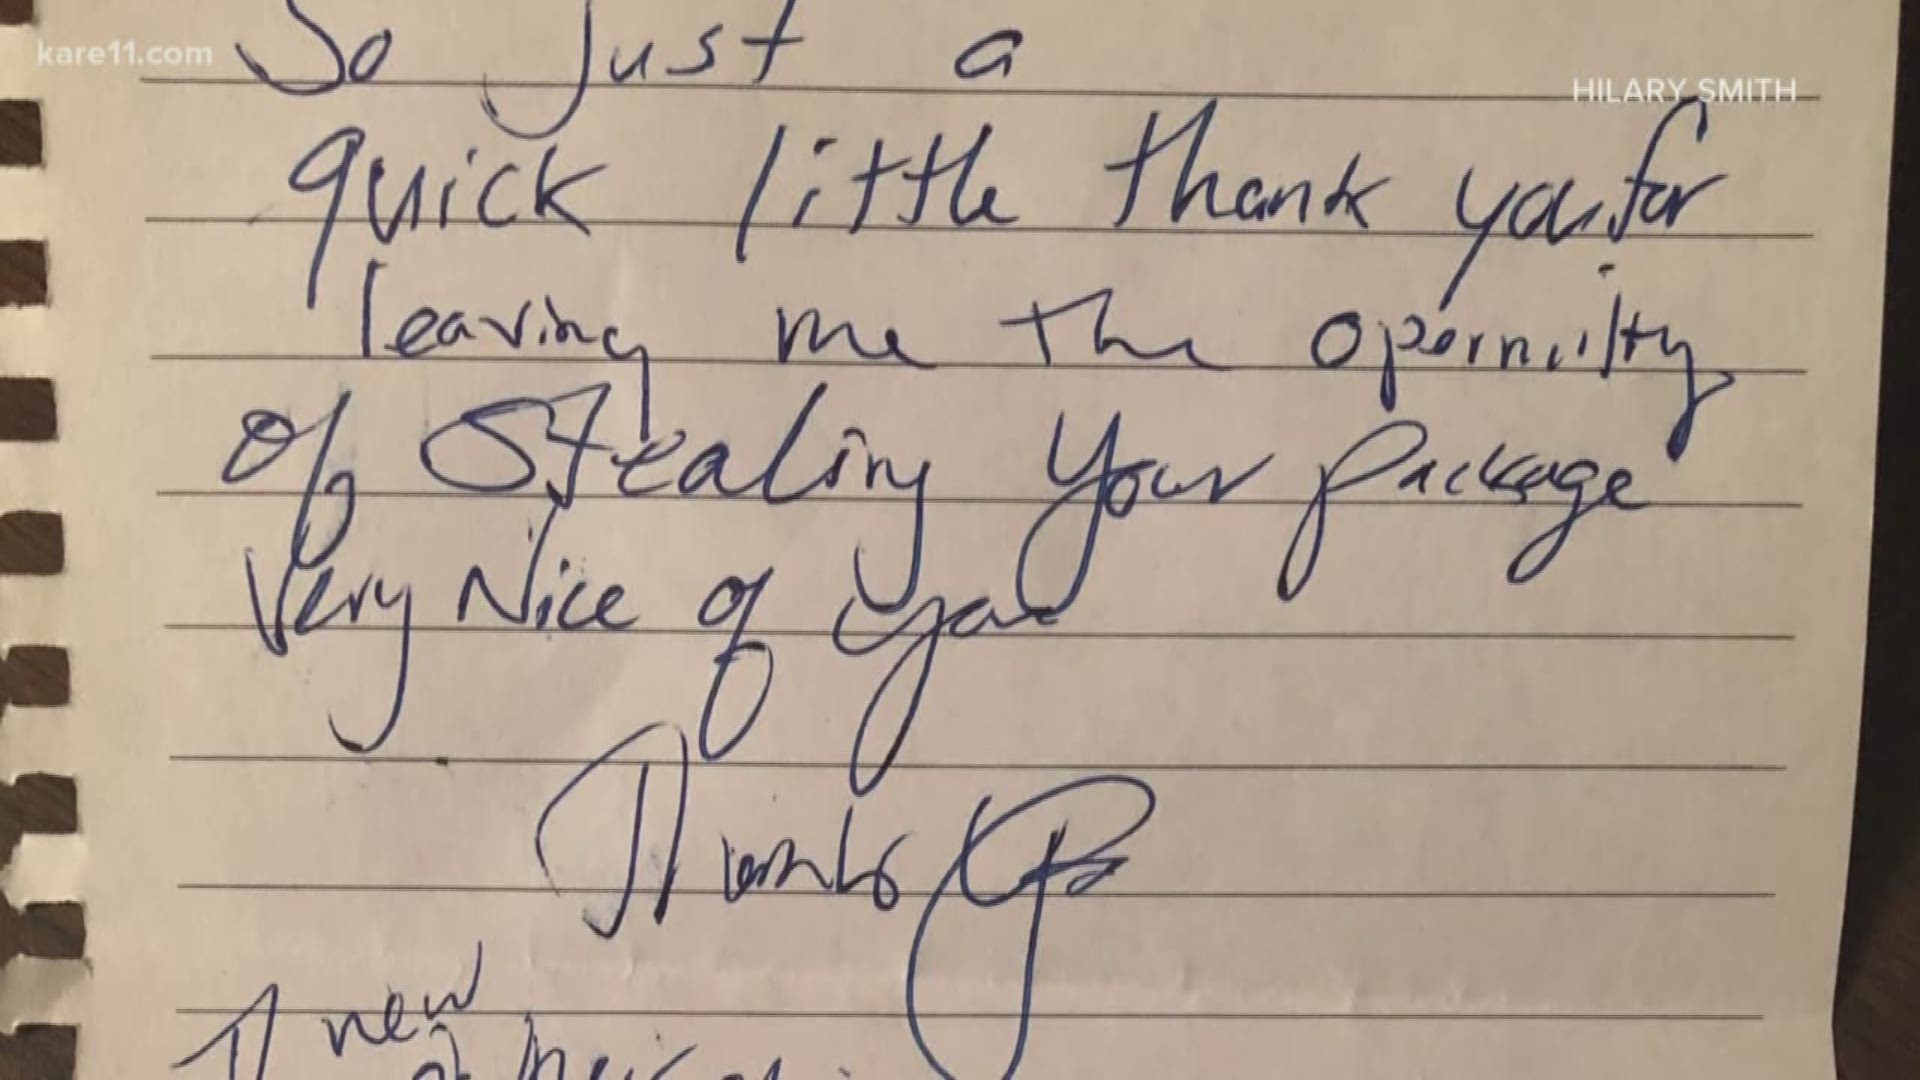 kare11.com
HILARY SMITH
So just a
quick little thank you for
leaving me the opernuilty
of Stealing Your package
Very Nice of you
Thanks
new
of